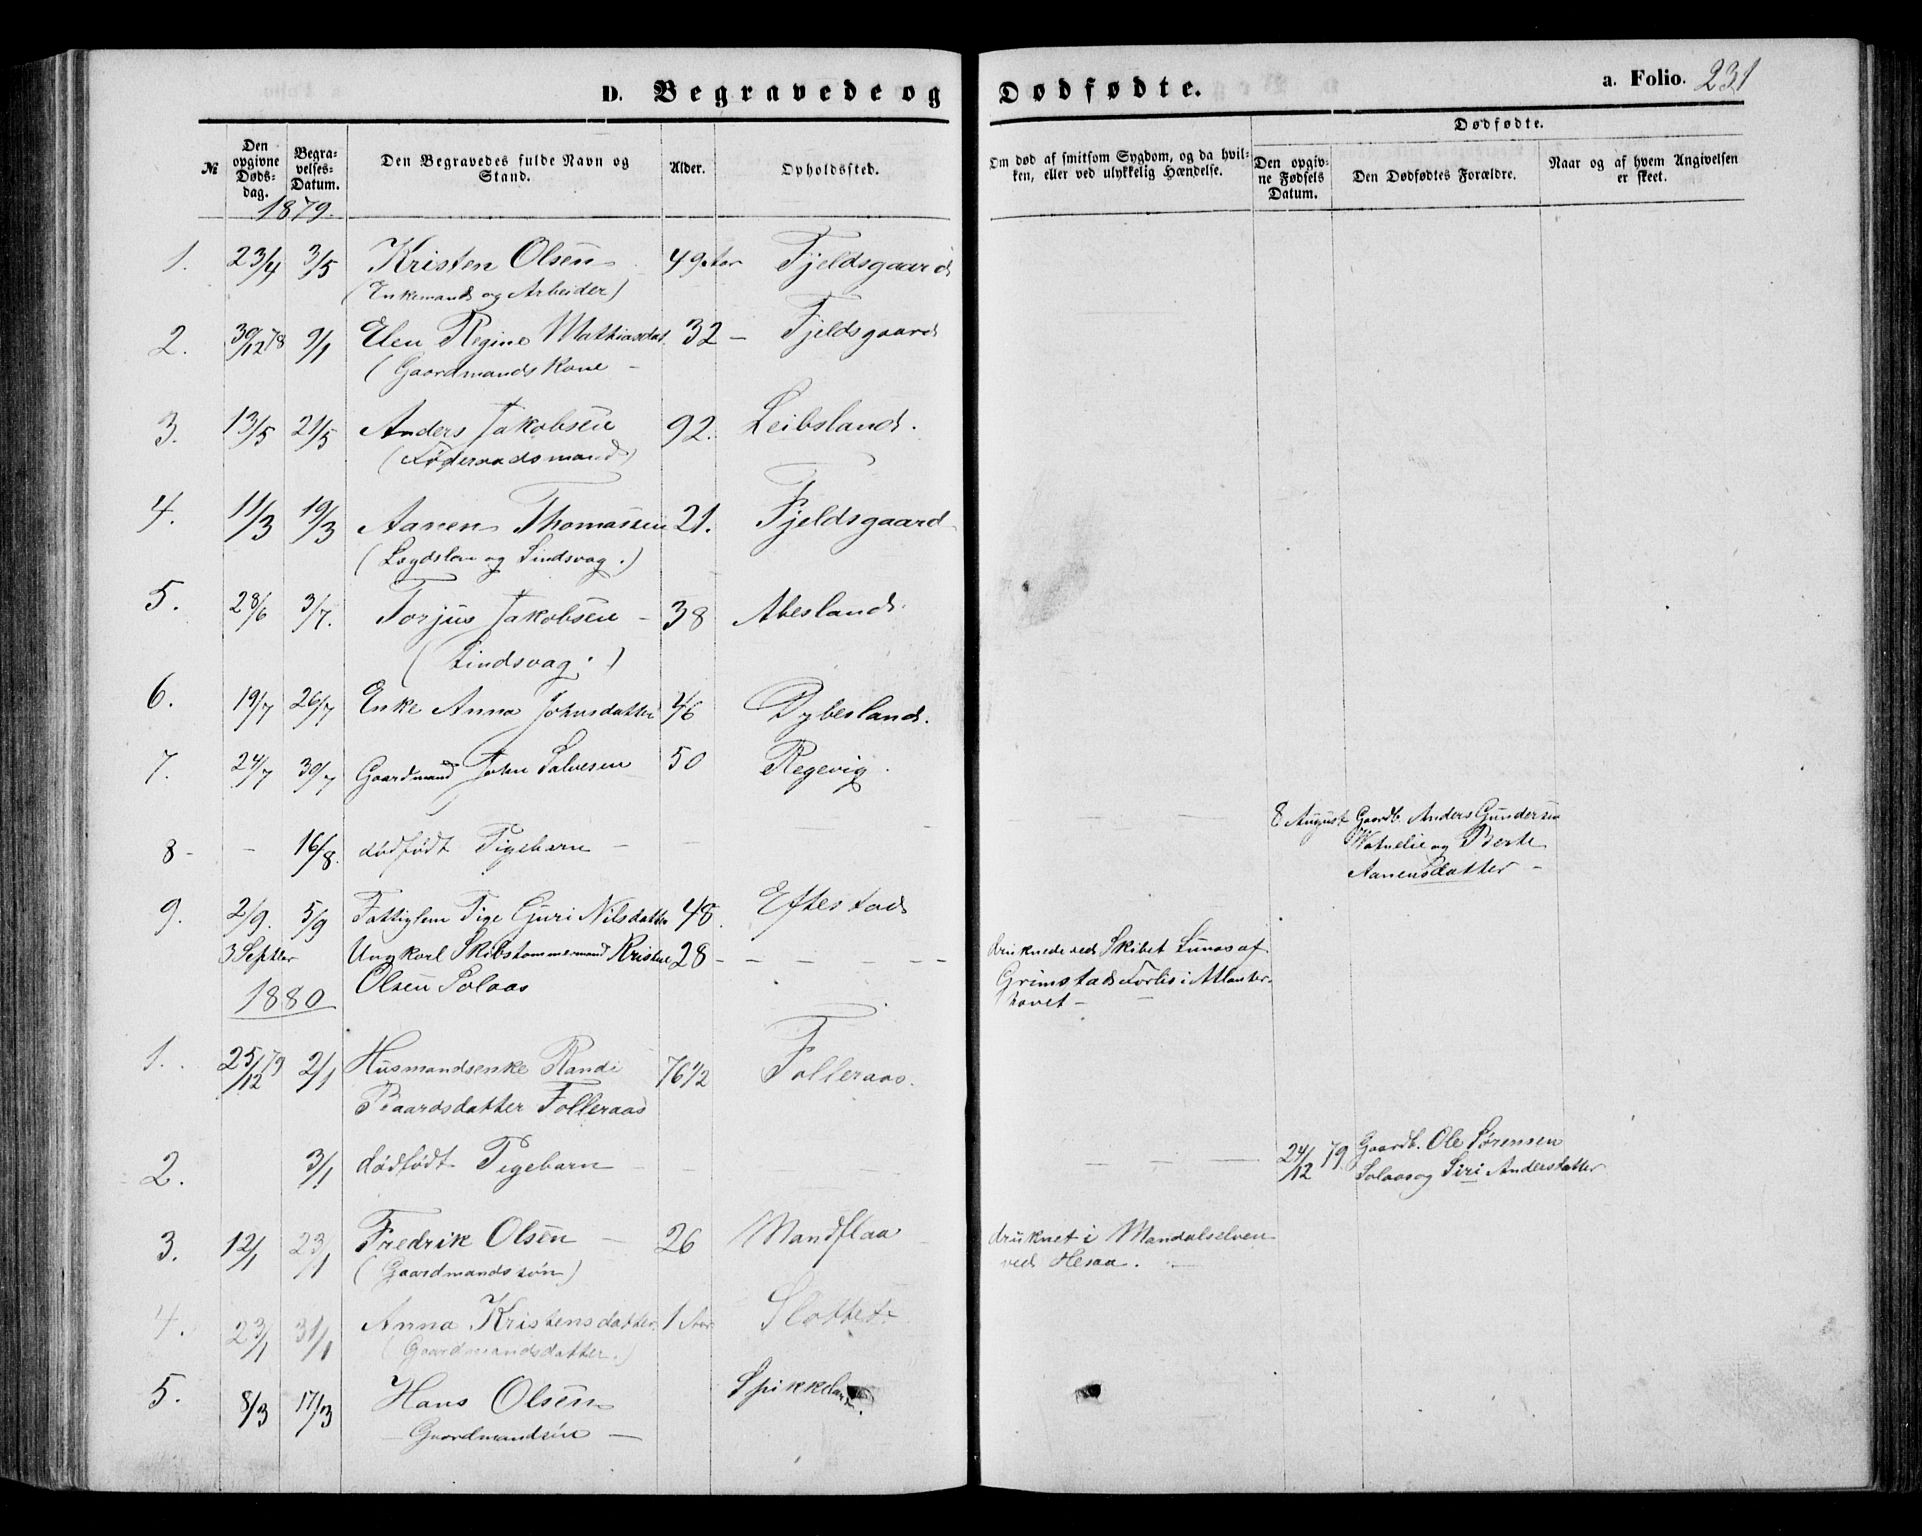 D. Begravede og Dødfødte.
a. Folio. 231
№
Den opgivne Døds- dag.
Begra- velses- Datum.
Den Begravedes fulde Navn og Stand.
Alder.
Opholdssted.
Om død af smitsom Sygdom, og da hvil- ken, eller ved ulykkelig Hændelse.
Dødfødte.
Den opgiv- ne Fødsels Datum.
Den Dødfødtes Forældre.
Naar og af hvem Angivelsen er skeet.
1879.
1. 23/4 3/5 Kristen Olsen 49 Aar Fjeldsgaard
(Enkemand og Arbeider)
2. 30/12 78 9/1 Elen Regine Mathiasdat 32 – Fjeldsgaard
(Gaardmandskone –
3. 13/5 21/5 Anders Jakobsen 92. Leibsland.
(Føderaadsmand)
4. 11/3 19/3 Aanen Thomassen 21. Fjeldsgaard
(Lægdslem og Sindsvag.)
5. 28/6 3/7. Torjus Jakobsen – 38 Abesland.
(Sindsvag.)
6. 19/7 26/7 Enke Anna Johnsdatter 46 Dybesland.
7. 24/7 30/7 Gaardmand John Salvesen 50 Regevig.
8 – – 16/8. dødfødt Pigebarn – – – – – 8 August Gaardb. Anders Gundersen
og Berte
Aanensdatter –
9. 2/9. 5/9 Fattiglem Pige Guri Nilsdatter 48. Eftestad
3 Septbr Ungkarl Skibstømmermand Kristen 28 – – – – – – druknede ved Skibet Lunas af
Olsen Solaas Grimstads Forlis i Atlanter-
havet –
1880
1. 25/12 79 2/1 Husmandsenke Randi 76 1/2 Folleraas.
Baardsdatter Folleraas
2. 3/1 dødfødt Pigebarn – – – – – 24/12 79. Gaardb. Ole Sørensen
Solaas og Siri Andersdatter
3. 12/1 23/1 Fredrik Olsen – 26 Mandflaa druknet i Mandalselven
(Gaardmandssøn) ved Hesaa.
4. 23/1 31/1 Anna Kristensdatter 1 Aar Slottet
(Gaardmandsdatter.)
5. 8/3 17/3 Hans Olsen
– Gaardmandsøn –